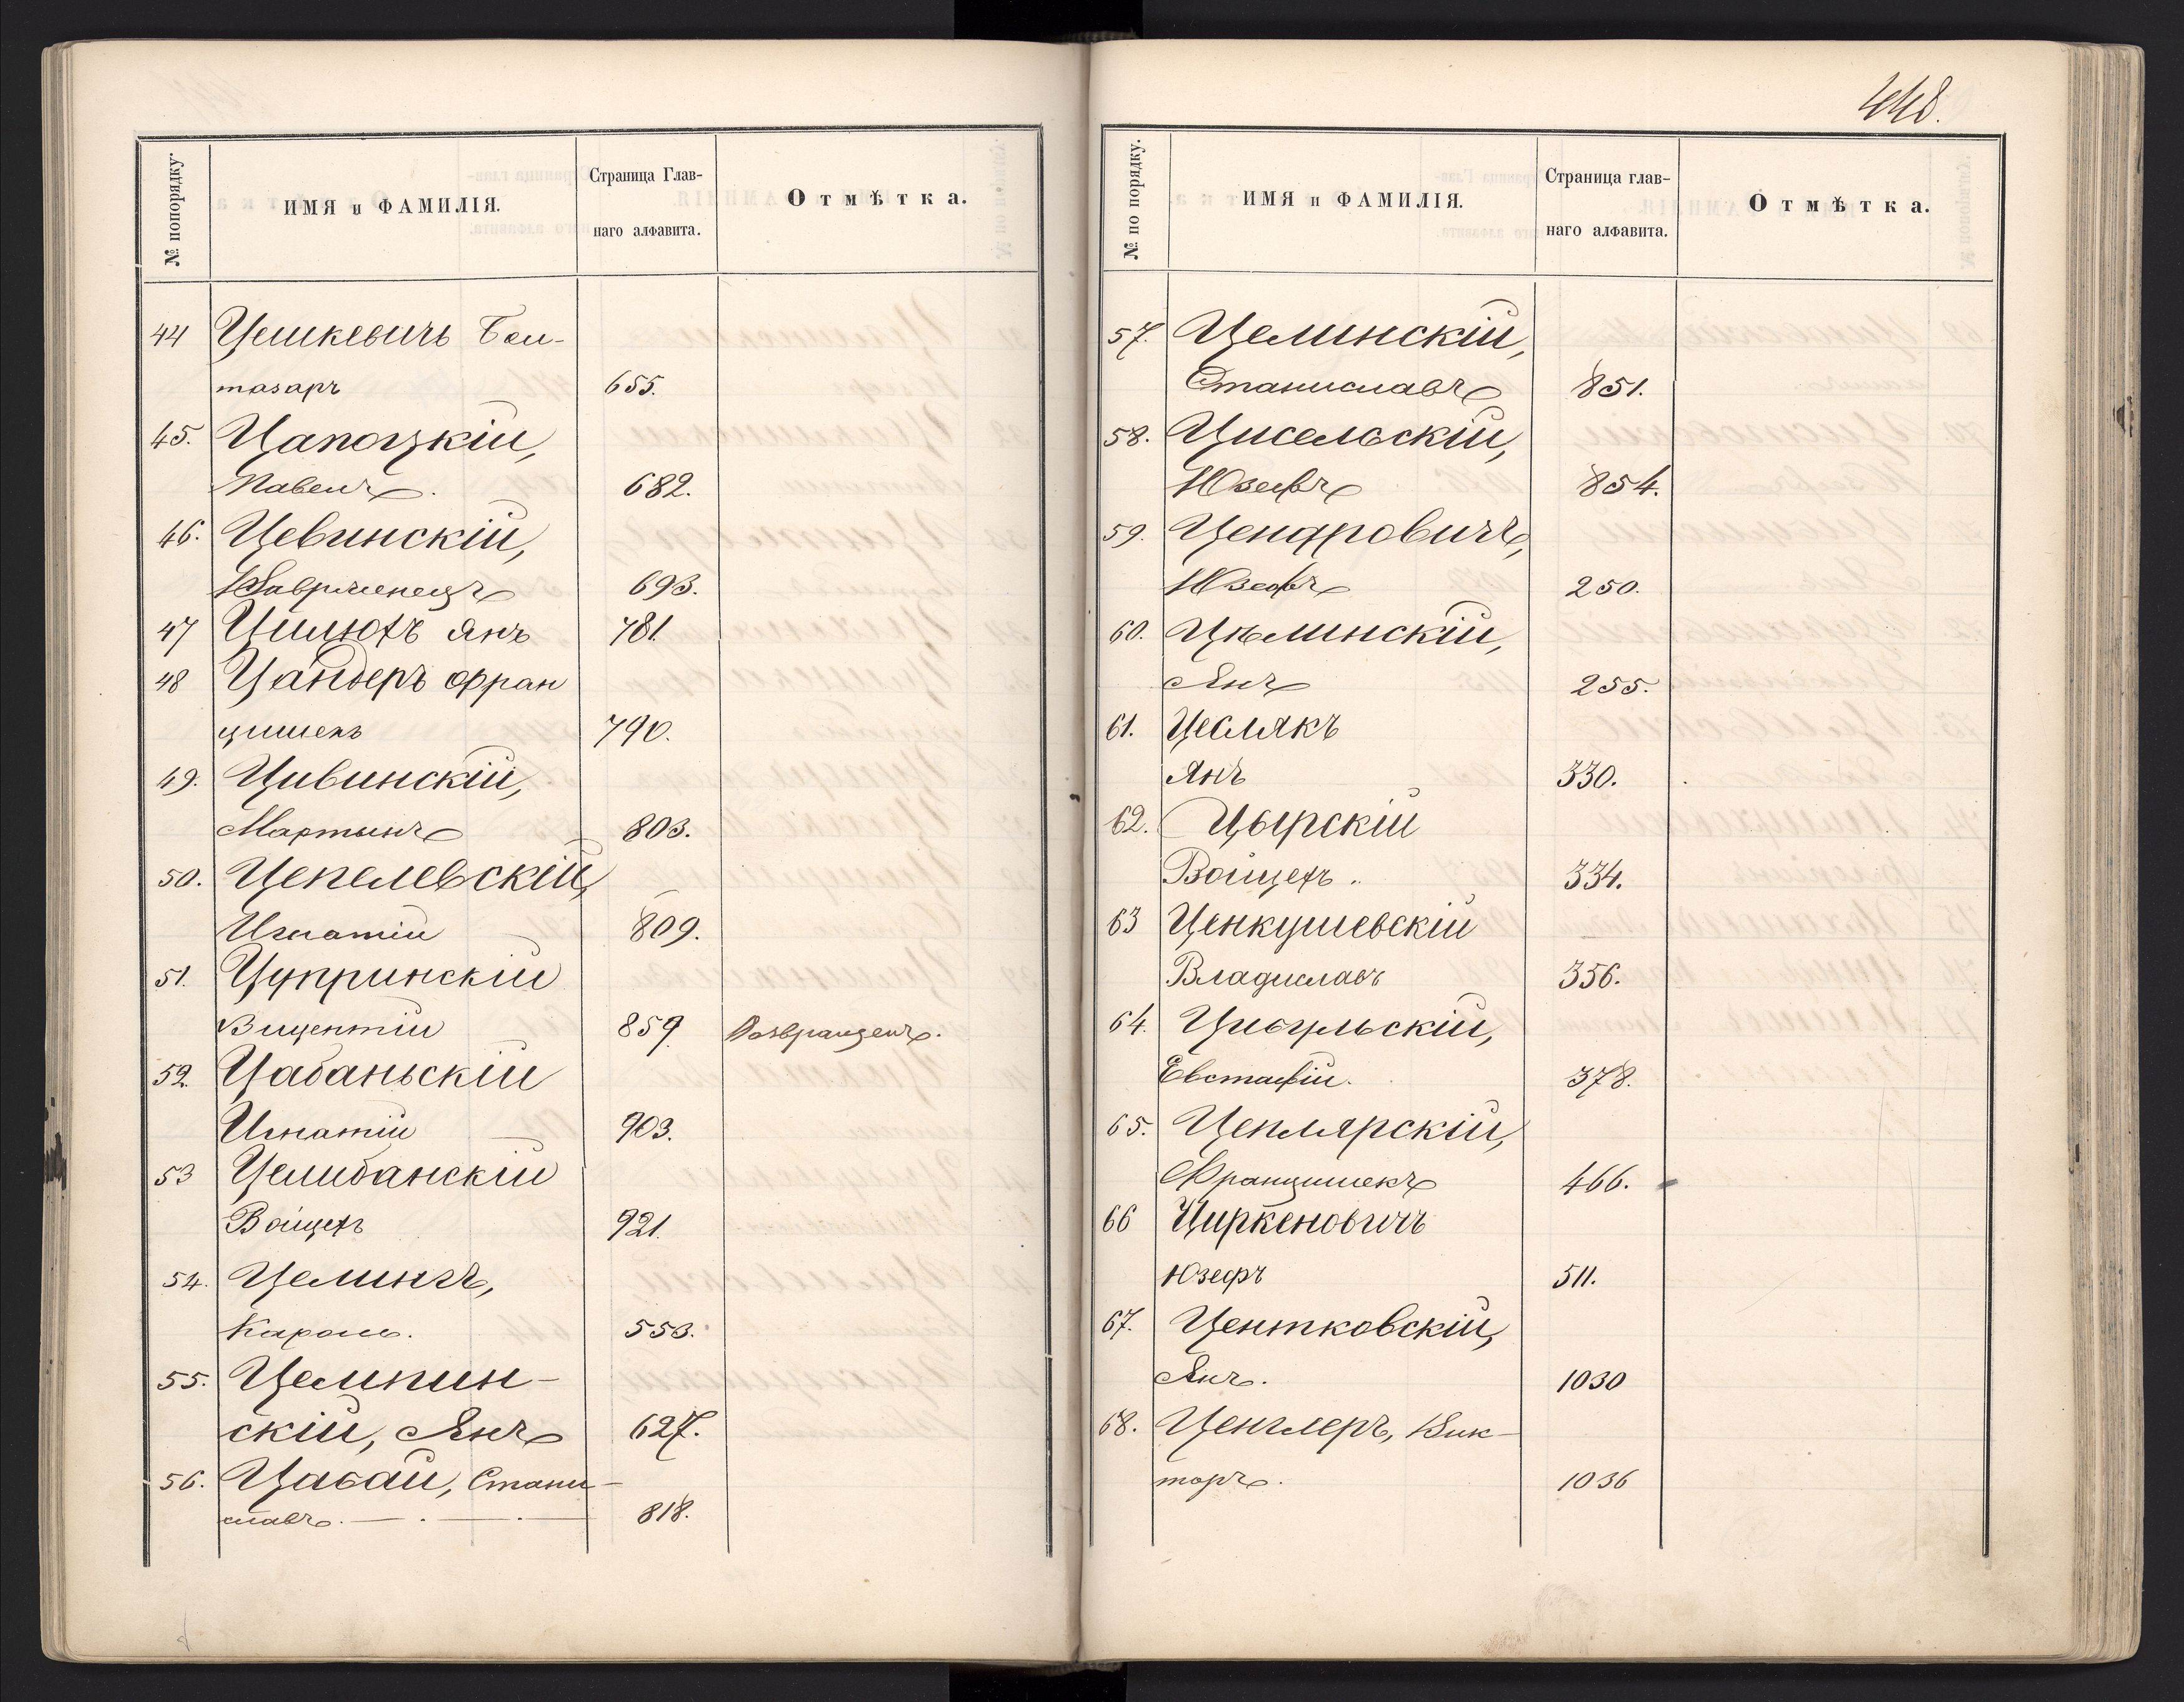 № попорядку.
ИМЯ и ФАМИЛІЯ.
Страница Глав-
наго алфавита.
Отмѣтка.
44 Цешкевичъ Бал-
тазаръ 655.
45. Цапоцкій,
Павелъ. 682.
46. Цевинскій,
Вавржинецъ 693.
47 Цилюхъ Янъ 781.
48 Цандеръ Фран
цишекъ 790.
49. Цивинскій,
Мартынъ 803.
50. Цепелевскій,
Игнатій 809.
51. Цупринскій
Вицентій 859 Возвращенъ.
52. Цабаньскій
Игнатій 903.
53 Целибанскій
Войцехъ 921.
54. Целингъ,
Кароль. 553.
55. Цемпин-
скій, Янъ 627.
56. Цабай, Стани-
славъ. 818.
448.
№ по порядку.
ИМЯ и ФАМИЛІЯ.
Страница глав-
наго алфавита.
Отмѣтка.
57. Целинскій,
Станиславъ 851.
58. Цисельскій,
Юзефъ 854.
59. Цендровичъ,
Юзефъ 250.
60. Цѣлинскій,
Янъ 255.
61. Цеслякъ
Янъ 330.
62. Цырскій
Войцехъ 334.
63 Ценкушевскій
Владиславъ 356.
64. Цибульскій,
Евстафій. 378.
65. Цеплярскій,
Францишекъ 466.
66 Циркеновичъ
Юзефъ 511.
67. Центковскій,
Янъ. 1030
68. Ценглеръ, Вик-
торъ. 1036